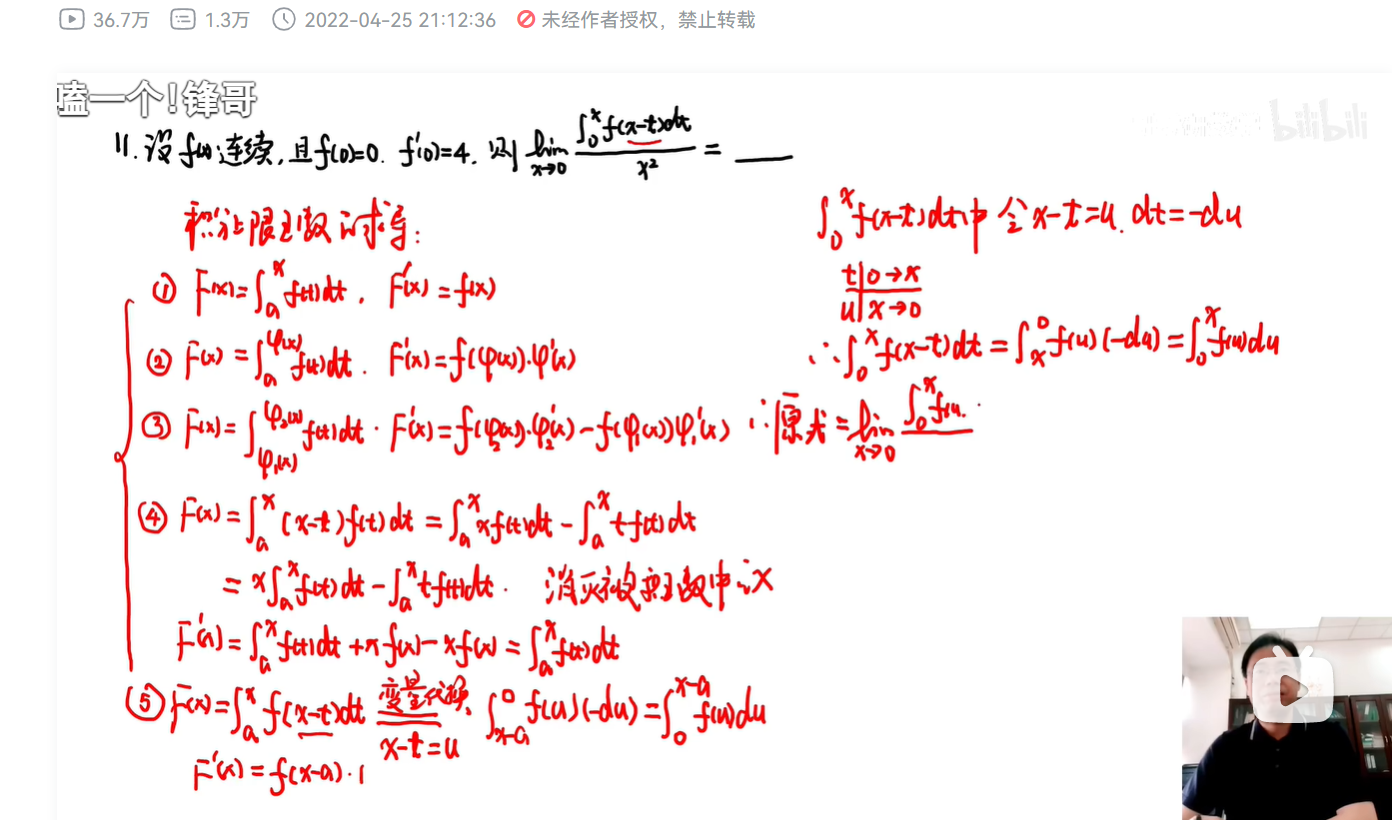 36.7万 1.3万 2022-04-25 21:12:36 未经作者授权，禁止转载
嗑一个!锋哥
bilibili
11. 设f(x)连续,且f(0)=0. f'(0)=4. 则 lim_{x→0} ∫_0^x f(x-t)dt / x² = ____
积分上限函数的求导:
① F(x)=∫_a^x f(t)dt, F'(x)=f(x)
② F(x)=∫_a^{φ(x)} f(t)dt. F'(x)=f(φ(x))·φ'(x)
③ F(x)=∫_{φ₁(x)}^{φ₂(x)} f(t)dt. F'(x)=f(φ₂(x))·φ₂'(x)-f(φ₁(x))φ₁'(x)
④ F(x)=∫_a^x (x-t)f(t)dt=∫_a^x xf(t)dt-∫_a^x tf(t)dt
=x∫_a^x f(t)dt-∫_a^x tf(t)dt. 消灭被积函数中的x
F'(x)=∫_a^x f(t)dt+xf(x)-xf(x)=∫_a^x f(t)dt
⑤ F(x)=∫_a^x f(x-t)dt 变量代换 x-t=u ∫_{x-a}^0 f(u)(-du)=∫_0^{x-a} f(u)du
F'(x)=f(x-a)·1
∫_0^x f(x-t)dt中 令x-t=u. dt=-du
t|0→x
u|x→0
∴∫_0^x f(x-t)dt=∫_x^0 f(u)(-du)=∫_0^x f(u)du
∴原式=lim_{x→0} ∫_0^x f(u.